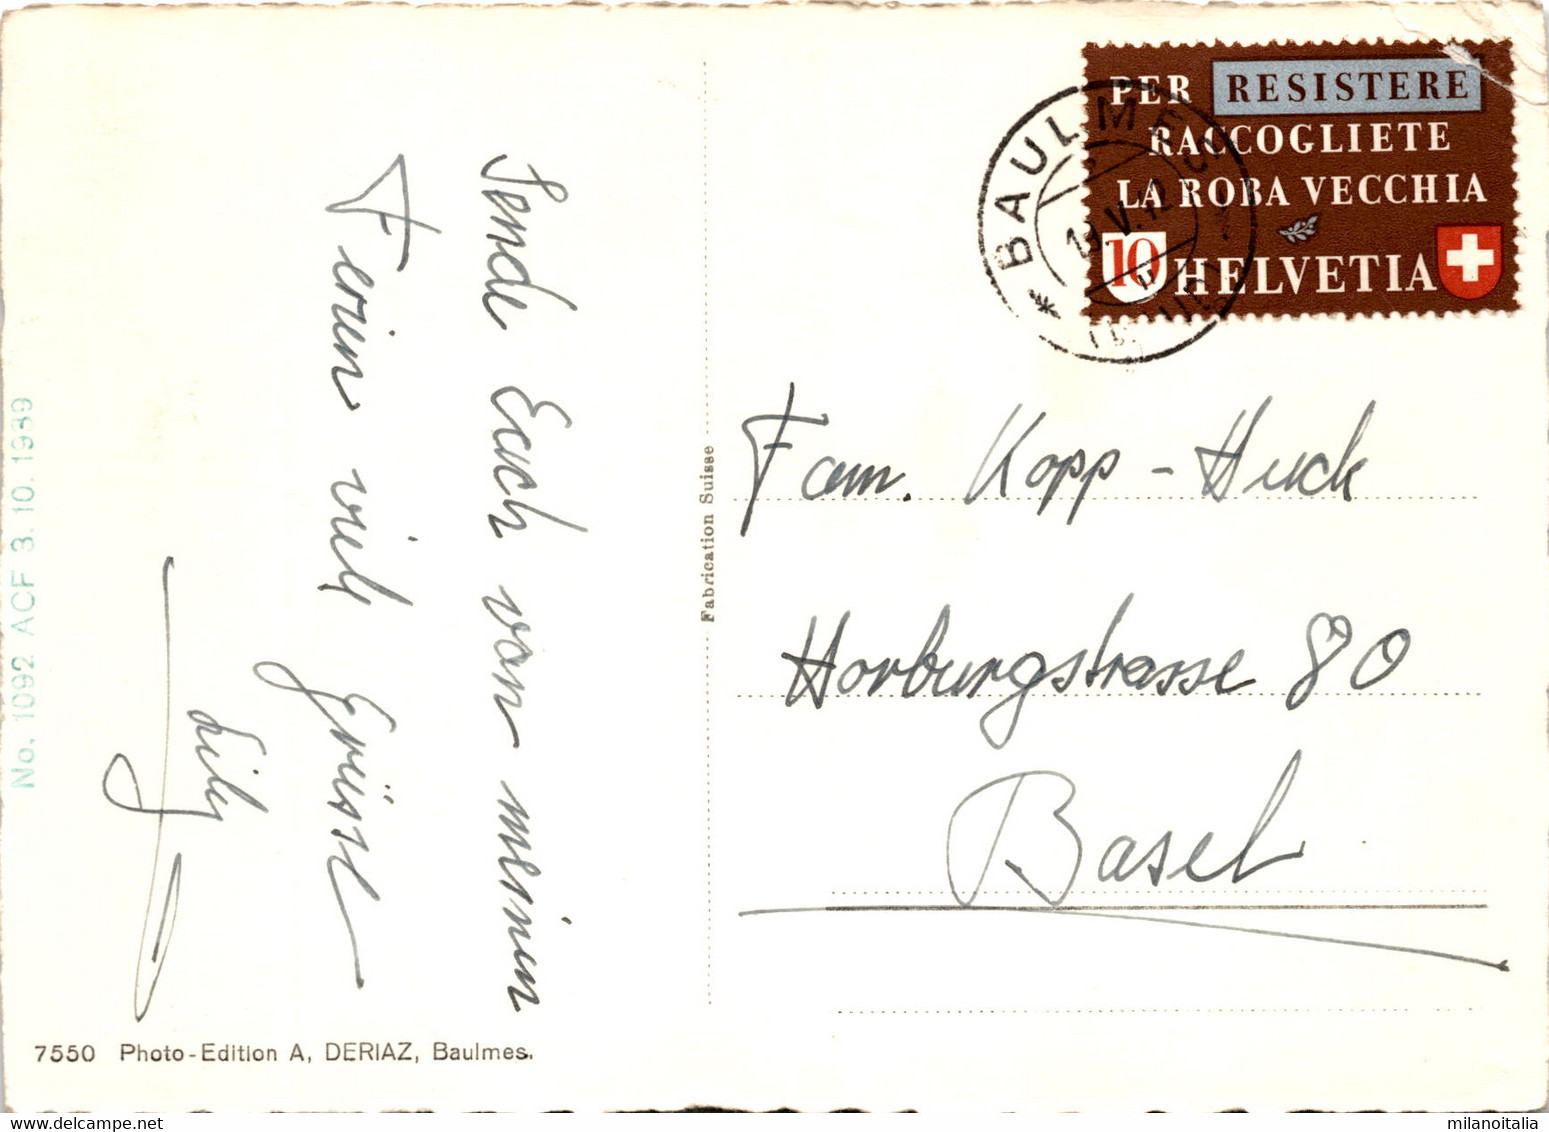 Sende Euch von meinen
Ferien viele Grüsse
Lily
No. 1092 ACF 3.10.1939
7550 Photo-Edition A, DERIAZ, Baulmes.
Fabrication Suisse
PER RESISTERE
RACCOGLIETE
LA ROBA VECCHIA
10 HELVETIA
BAULMES
19.V.42
Fam. Kopp-Huck
Horburgstrasse 80
Basel
milanoitalia